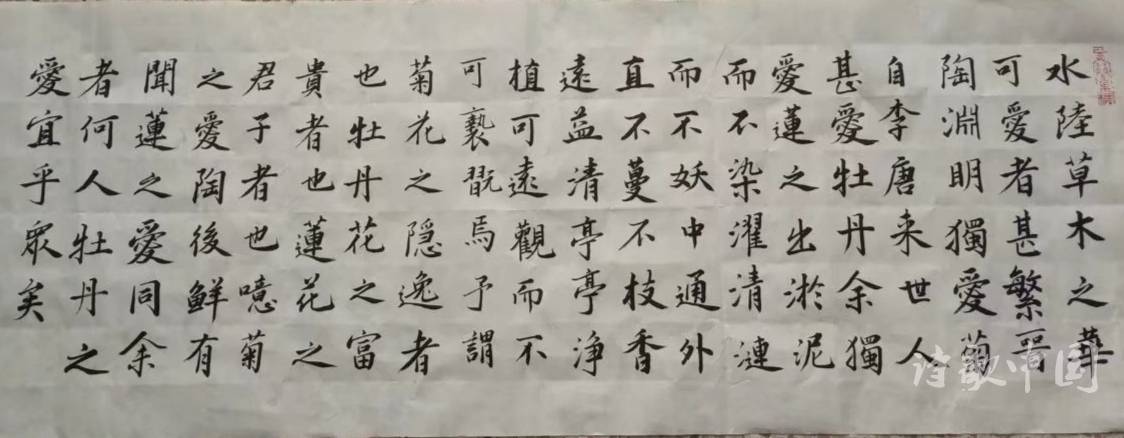 水陸草木之華
可愛者甚繁晉
陶淵明獨愛菊
自李唐来世人
甚愛牡丹余獨
愛蓮之出淤泥
而不染濯清漣
而不妖中通外
直不蔓不枝香
遠益清亭亭净
植可遠觀而不
可褻翫焉予謂
菊花之隠逸者
也牡丹花之富
貴者也蓮花之
君子者也噫菊
之愛陶後鮮有
聞蓮之愛同余
者何人牡丹之
愛宜乎眾矣
诗歌中国